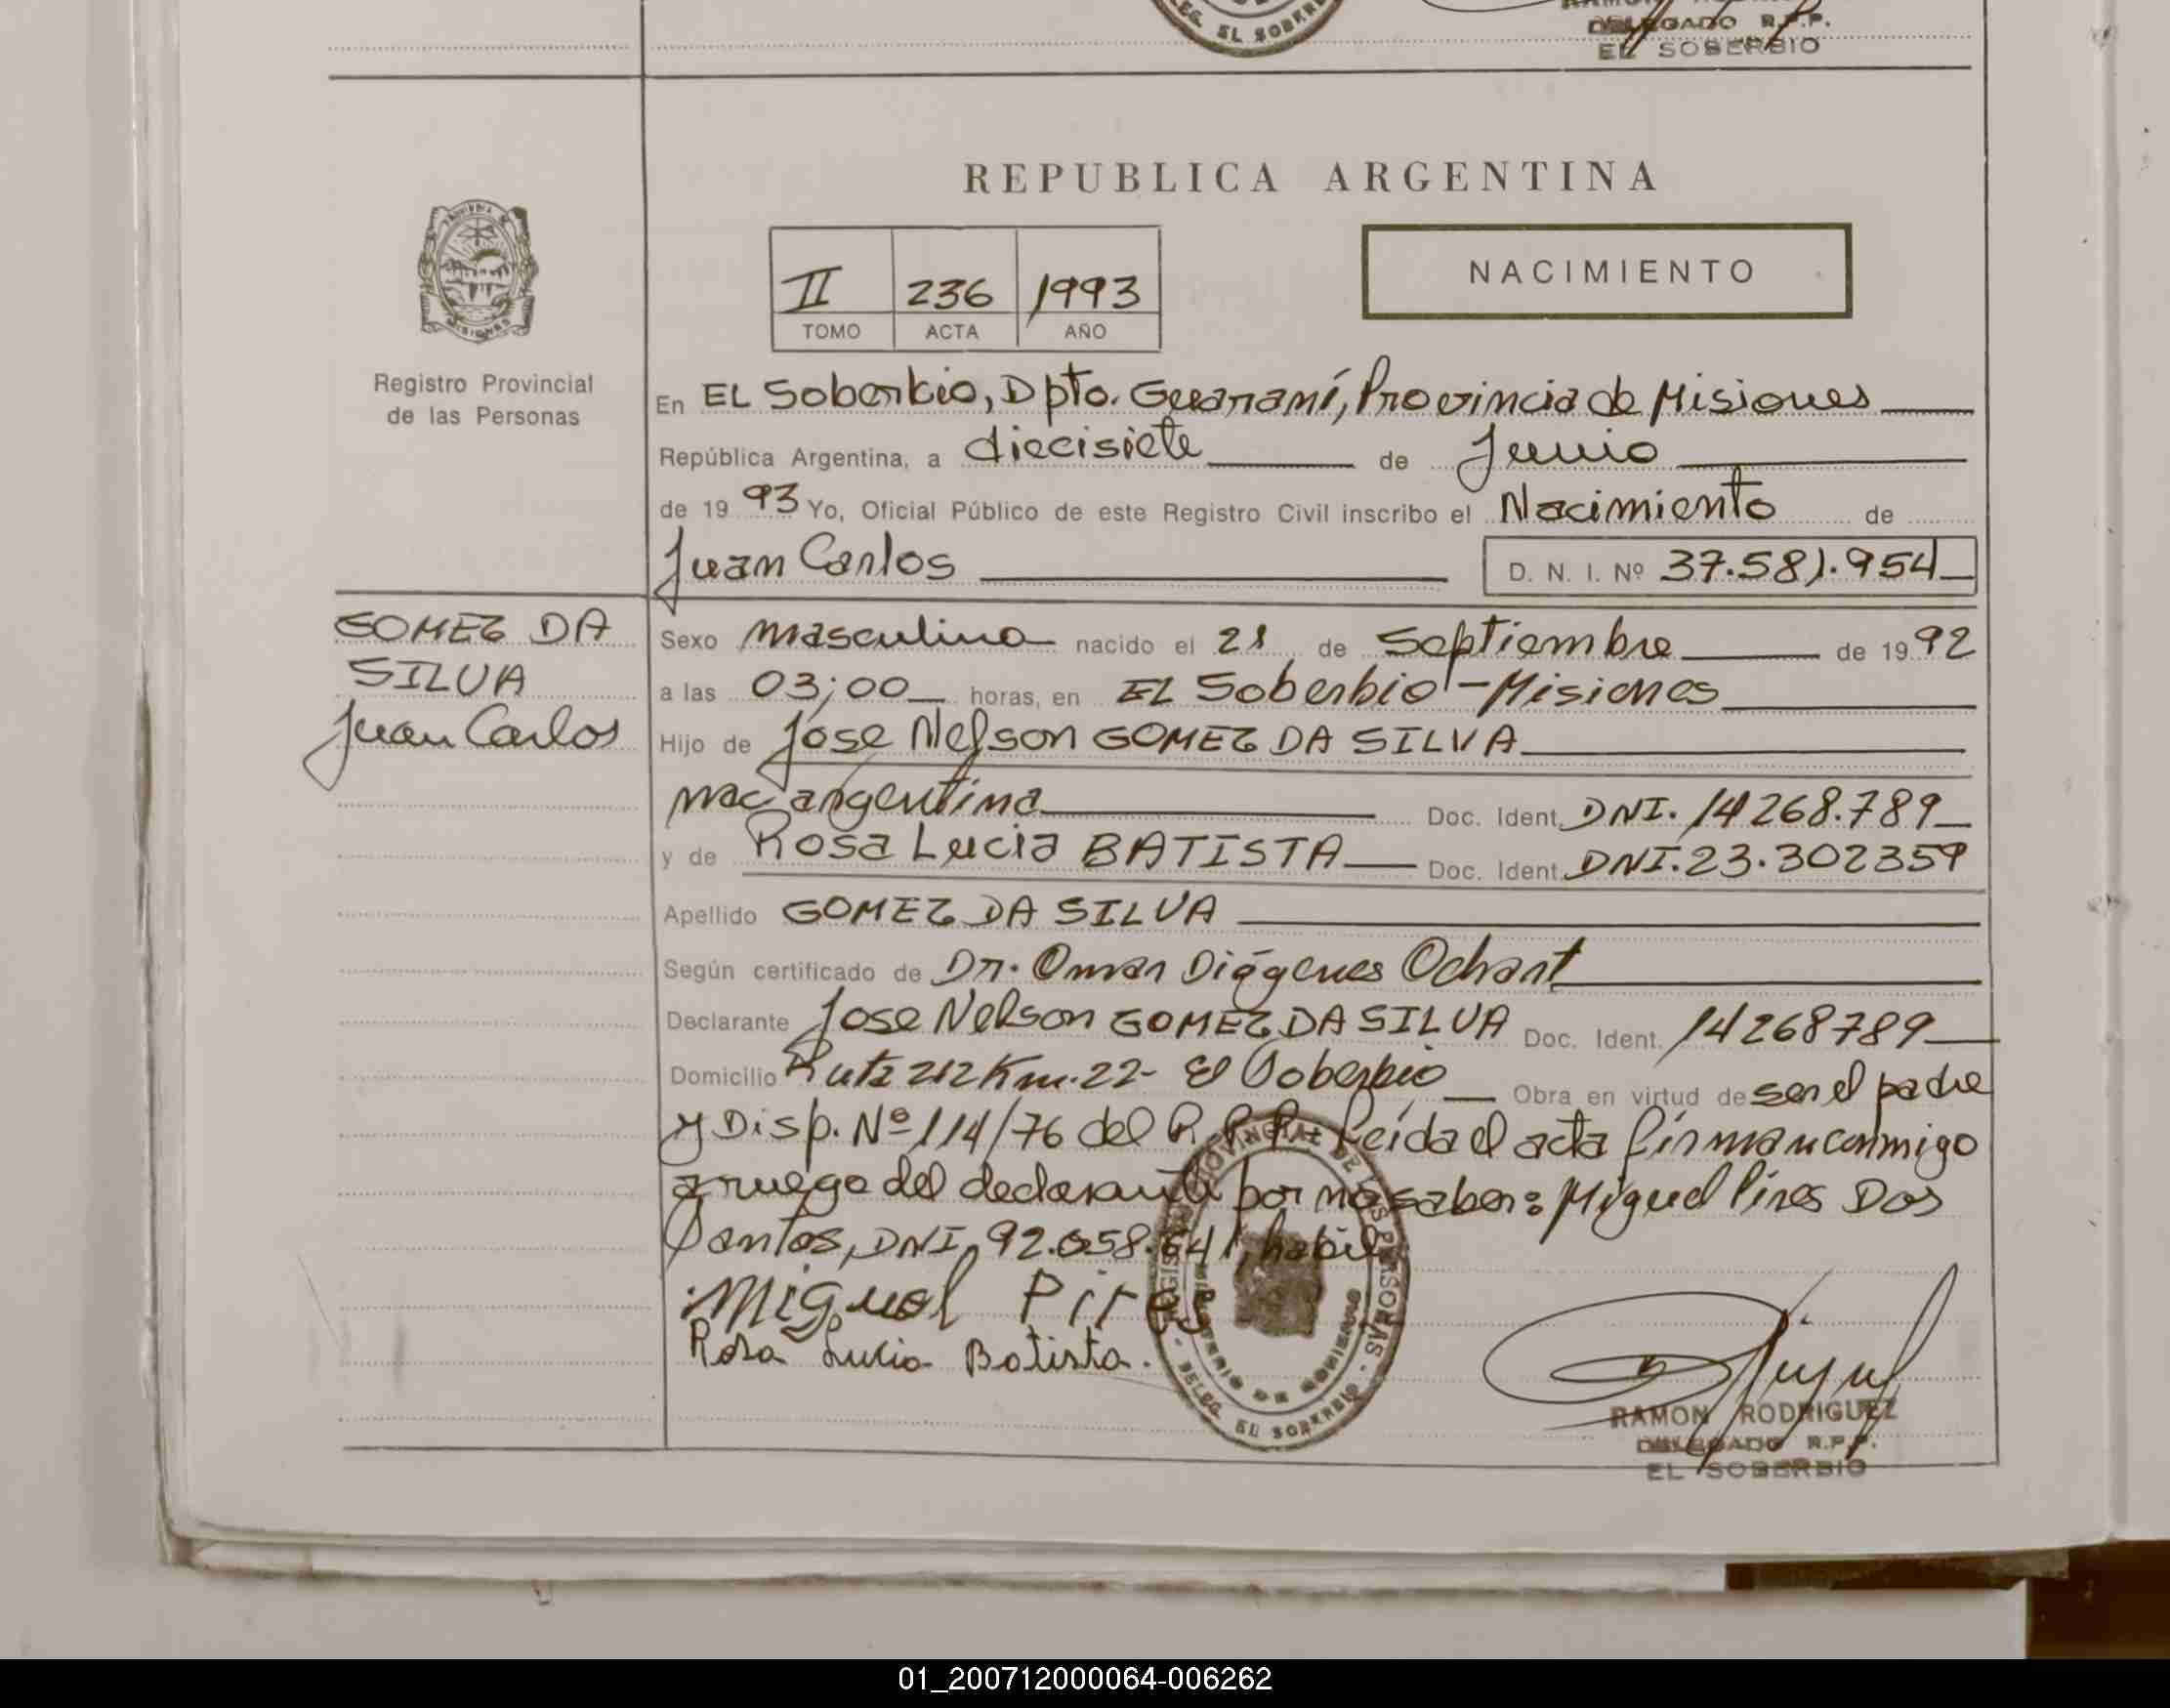 EL SOBERBIO
DELEGADO R.P.P.
EL SOBERBIO
REPUBLICA ARGENTINA
II 236 1993
TOMO ACTA AÑO
NACIMIENTO
Registro Provincial
de las Personas
En EL Soberbio, Dpto. Guaraní, Provincia de Misiones
República Argentina, a diecisiete de Junio
de 19 93 Yo, Oficial Público de este Registro Civil inscribo el Nacimiento de
Juan Carlos D. N. I. Nº 37.581.954
GOMEZ DA
SILVA
Juan Carlos
Sexo masculino nacido el 21 de Septiembre de 19 92
a las 03;00 horas, en EL Soberbio - Misiones
Hijo de Jose Nelson GOMEZ DA SILVA
nac argentina Doc. Ident. DNI. 14268.789
y de Rosa Lucia BATISTA Doc. Ident. DNI. 23.302359
Apellido GOMEZ DA SILVA
Según certificado de Dr. Omar Diógenes Ochart
Declarante Jose Nelson GOMEZ DA SILVA Doc. Ident. 14268789
Domicilio Ruta 212 Km. 22- El Soberbio Obra en virtud de ser el padre
y Disp. Nº 114/76 del R.P.P. Leída el acta firman conmigo
a ruego del declarante por no saber: Miguel Pires Dos
Santos, DNI, 92.058.641, habil
Miguel Pires
Rosa Lucia Batista.
REGISTRO PROVINCIAL DE LAS PERSONAS - DELEG. EL SOBERBIO -
MINISTERIO DE GOBIERNO
RAMON RODRIGUEZ
DELEGADO R.P.P.
EL SOBERBIO
01_200712000064-006262